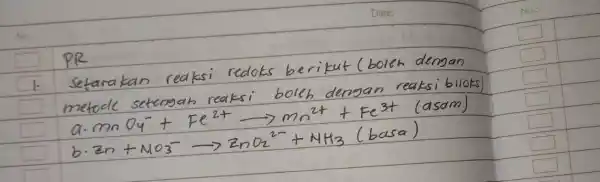 Date:
No.
No.
PR
1. Setarakan reaksi redoks berikut (boleh dengan
metode setengah reaksi boleh dengan reaksi biloks)
a. mnO4⁻ + Fe²⁺ → mn²⁺ + Fe³⁺ (asam)
b. Zn + NO3⁻ → ZnO2²⁻ + NH3 (basa)